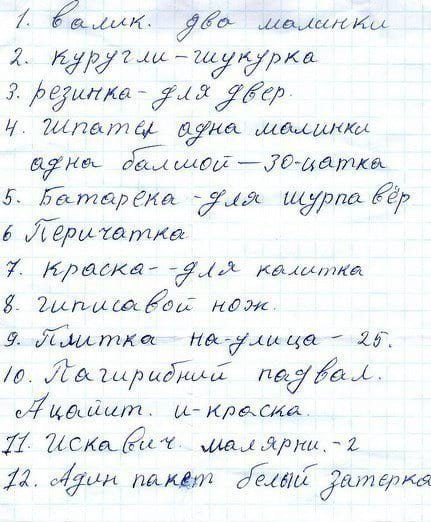 1. валик. два малинки
2. куругли-шукурка
3. резинка-для двер.
4. шпател адна малинки
адна балшой-30-цатка
5. Батарека-для шурпавёр
6 Перичатка
7. краска--для калитка
8. гиписавой нож.
9. Плитка на-улица-25.
10. Пагирибний падвал.
Ацайит. и-краска.
11. Искавич. малярни.-2
12. Адин пакет белый затерка